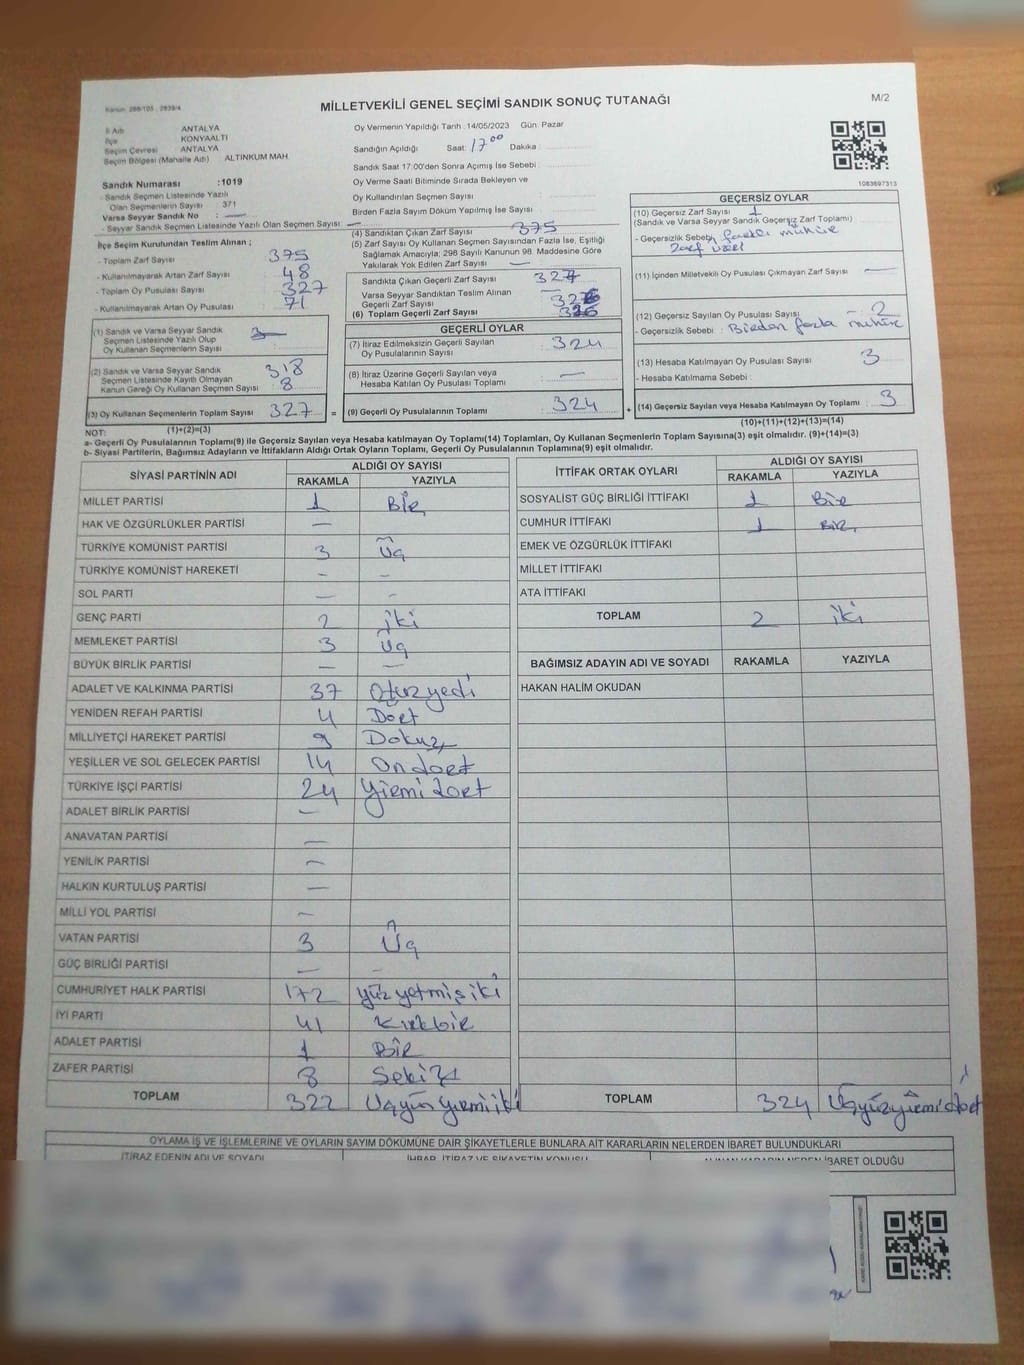 Kanun: 298/105 , 2839/4
MİLLETVEKİLİ GENEL SEÇİMİ SANDIK SONUÇ TUTANAĞI
M/2
İl Adı ANTALYA
İlçe KONYAALTI
Seçim Çevresi ANTALYA
Seçim Bölgesi (Mahalle Adı) ALTINKUM MAH.
Sandık Numarası :1019
Sandık Seçmen Listesinde Yazılı
Olan Seçmenlerin Sayısı : 371
Varsa Seyyar Sandık No : —
- Seyyar Sandık Seçmen Listesinde Yazılı Olan Seçmen Sayısı: —
İlçe Seçim Kurulundan Teslim Alınan ;
- Toplam Zarf Sayısı 375
- Kullanılmayarak Artan Zarf Sayısı 48
- Toplam Oy Pusulası Sayısı 327
- Kullanılmayarak Artan Oy Pusulası 71
(1) Sandık ve Varsa Seyyar Sandık
Seçmen Listesinde Yazılı Olup
Oy Kullanan Seçmenlerin Sayısı
(2) Sandık ve Varsa Seyyar Sandık 318
Seçmen Listesinde Kayıtlı Olmayan
Kanun Gereği Oy Kullanan Seçmen Sayısı : 8
(3) Oy Kullanan Seçmenlerin Toplam Sayısı 327 =
(1)+(2)=(3)
Oy Vermenin Yapıldığı Tarih :14/05/2023 Gün: Pazar
Sandığın Açıldığı Saat: 17 00 Dakika :
Sandık Saat 17:00'den Sonra Açılmış İse Sebebi :
Oy Verme Saati Bitiminde Sırada Bekleyen ve
Oy Kullandırılan Seçmen Sayısı :
Birden Fazla Sayım Döküm Yapılmış İse Sayısı :
(4) Sandıktan Çıkan Zarf Sayısı : 375
(5) Zarf Sayısı Oy Kullanan Seçmen Sayısından Fazla İse, Eşitliği
Sağlamak Amacıyla; 298 Sayılı Kanunun 98. Maddesine Göre
Yakılarak Yok Edilen Zarf Sayısı : —
Sandıkta Çıkan Geçerli Zarf Sayısı : 327
Varsa Seyyar Sandıktan Teslim Alınan —
Geçerli Zarf Sayısı 326
(6) Toplam Geçerli Zarf Sayısı : 326
GEÇERLİ OYLAR
(7) İtiraz Edilmeksizin Geçerli Sayılan : 324
Oy Pusulalarının Sayısı
(8) İtiraz Üzerine Geçerli Sayılan veya : —
Hesaba Katılan Oy Pusulası Toplamı
(9) Geçerli Oy Pusulalarının Toplamı : 324 +
1083697313
GEÇERSİZ OYLAR
(10) Geçersiz Zarf Sayısı : 1
(Sandık ve Varsa Seyyar Sandık Geçersiz Zarf Toplamı)
- Geçersizlik Sebebi: farklı mühür
Zarf üzeri
(11) İçinden Milletvekili Oy Pusulası Çıkmayan Zarf Sayısı : —
(12) Geçersiz Sayılan Oy Pusulası Sayısı : 2
- Geçersizlik Sebebi : Birden fazla mühür
(13) Hesaba Katılmayan Oy Pusulası Sayısı : 3
- Hesaba Katılmama Sebebi :
(14) Geçersiz Sayılan veya Hesaba Katılmayan Oy Toplamı : 3
(10)+(11)+(12)+(13)=(14)
NOT:
a- Geçerli Oy Pusulalarının Toplamı(9) ile Geçersiz Sayılan veya Hesaba katılmayan Oy Toplamı(14) Toplamları, Oy Kullanan Seçmenlerin Toplam Sayısına(3) eşit olmalıdır. (9)+(14)=(3)
b- Siyasi Partilerin, Bağımsız Adayların ve İttifakların Aldığı Ortak Oyların Toplamı, Geçerli Oy Pusulalarının Toplamına(9) eşit olmalıdır.
SİYASİ PARTİNİN ADI ALDIĞI OY SAYISI
RAKAMLA YAZIYLA
MİLLET PARTİSİ 1 Bir
HAK VE ÖZGÜRLÜKLER PARTİSİ —
TÜRKİYE KOMÜNİST PARTİSİ 3 Üç
TÜRKİYE KOMÜNİST HAREKETİ — —
SOL PARTİ — —
GENÇ PARTİ 2 iki
MEMLEKET PARTİSİ 3 Üç
BÜYÜK BİRLİK PARTİSİ — —
ADALET VE KALKINMA PARTİSİ 37 Otuzyedi
YENİDEN REFAH PARTİSİ 4 Dört
MİLLİYETÇİ HAREKET PARTİSİ 9 Dokuz
YEŞİLLER VE SOL GELECEK PARTİSİ 14 Ondört
TÜRKİYE İŞÇİ PARTİSİ 24 Yirmidört
ADALET BİRLİK PARTİSİ —
ANAVATAN PARTİSİ —
YENİLİK PARTİSİ —
HALKIN KURTULUŞ PARTİSİ —
MİLLİ YOL PARTİSİ —
VATAN PARTİSİ 3 Üç
GÜÇ BİRLİĞİ PARTİSİ — —
CUMHURİYET HALK PARTİSİ 172 yüzyetmişiki
İYİ PARTİ 41 Kırkbir
ADALET PARTİSİ 1 Bir
ZAFER PARTİSİ 8 Sekiz
TOPLAM 322 Üçyüzyirmiiki
İTTİFAK ORTAK OYLARI ALDIĞI OY SAYISI
RAKAMLA YAZIYLA
SOSYALİST GÜÇ BİRLİĞİ İTTİFAKI 1 Bir
CUMHUR İTTİFAKI 1 Bir
EMEK VE ÖZGÜRLÜK İTTİFAKI
MİLLET İTTİFAKI
ATA İTTİFAKI
TOPLAM 2 iki
BAĞIMSIZ ADAYIN ADI VE SOYADI RAKAMLA YAZIYLA
HAKAN HALİM OKUDAN
TOPLAM 324 Üçyüzyirmidört
OYLAMA İŞ VE İŞLEMLERİNE VE OYLARIN SAYIM DÖKÜMÜNE DAİR ŞİKAYETLERLE BUNLARA AİT KARARLARIN NELERDEN İBARET BULUNDUKLARI
İTİRAZ EDENİN ADI VE SOYADI İHBAR, İTİRAZ VE ŞİKAYETİN KONUSU ALINAN KARARIN NEDEN İBARET OLDUĞU